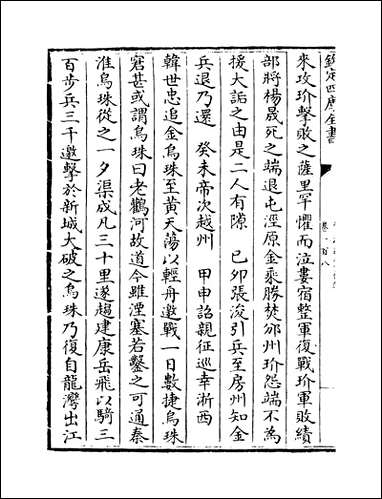 欽定四庫全書
來攻玠擊敗之薩里罕懼而泣婁宿整軍復戰玠軍敗績
部將楊晟死之端退屯涇原金乘勝焚邠州玠怨端不為
援大詬之由是二人有隙 己夘張浚引兵至房州知金
兵退乃還 癸未帝次越州 甲申詔親征巡幸浙西
韓世忠追金烏珠至黄天蕩以輕舟邀戰一日數捷烏珠
窘甚或謂烏珠曰老鸛河故道今雖湮塞若鑿之可通秦
淮烏珠從之一夕渠成凡三十里遂趨建康岳飛以騎三
百歩兵三千邀擊於新城大破之烏珠乃復自龍灣出江